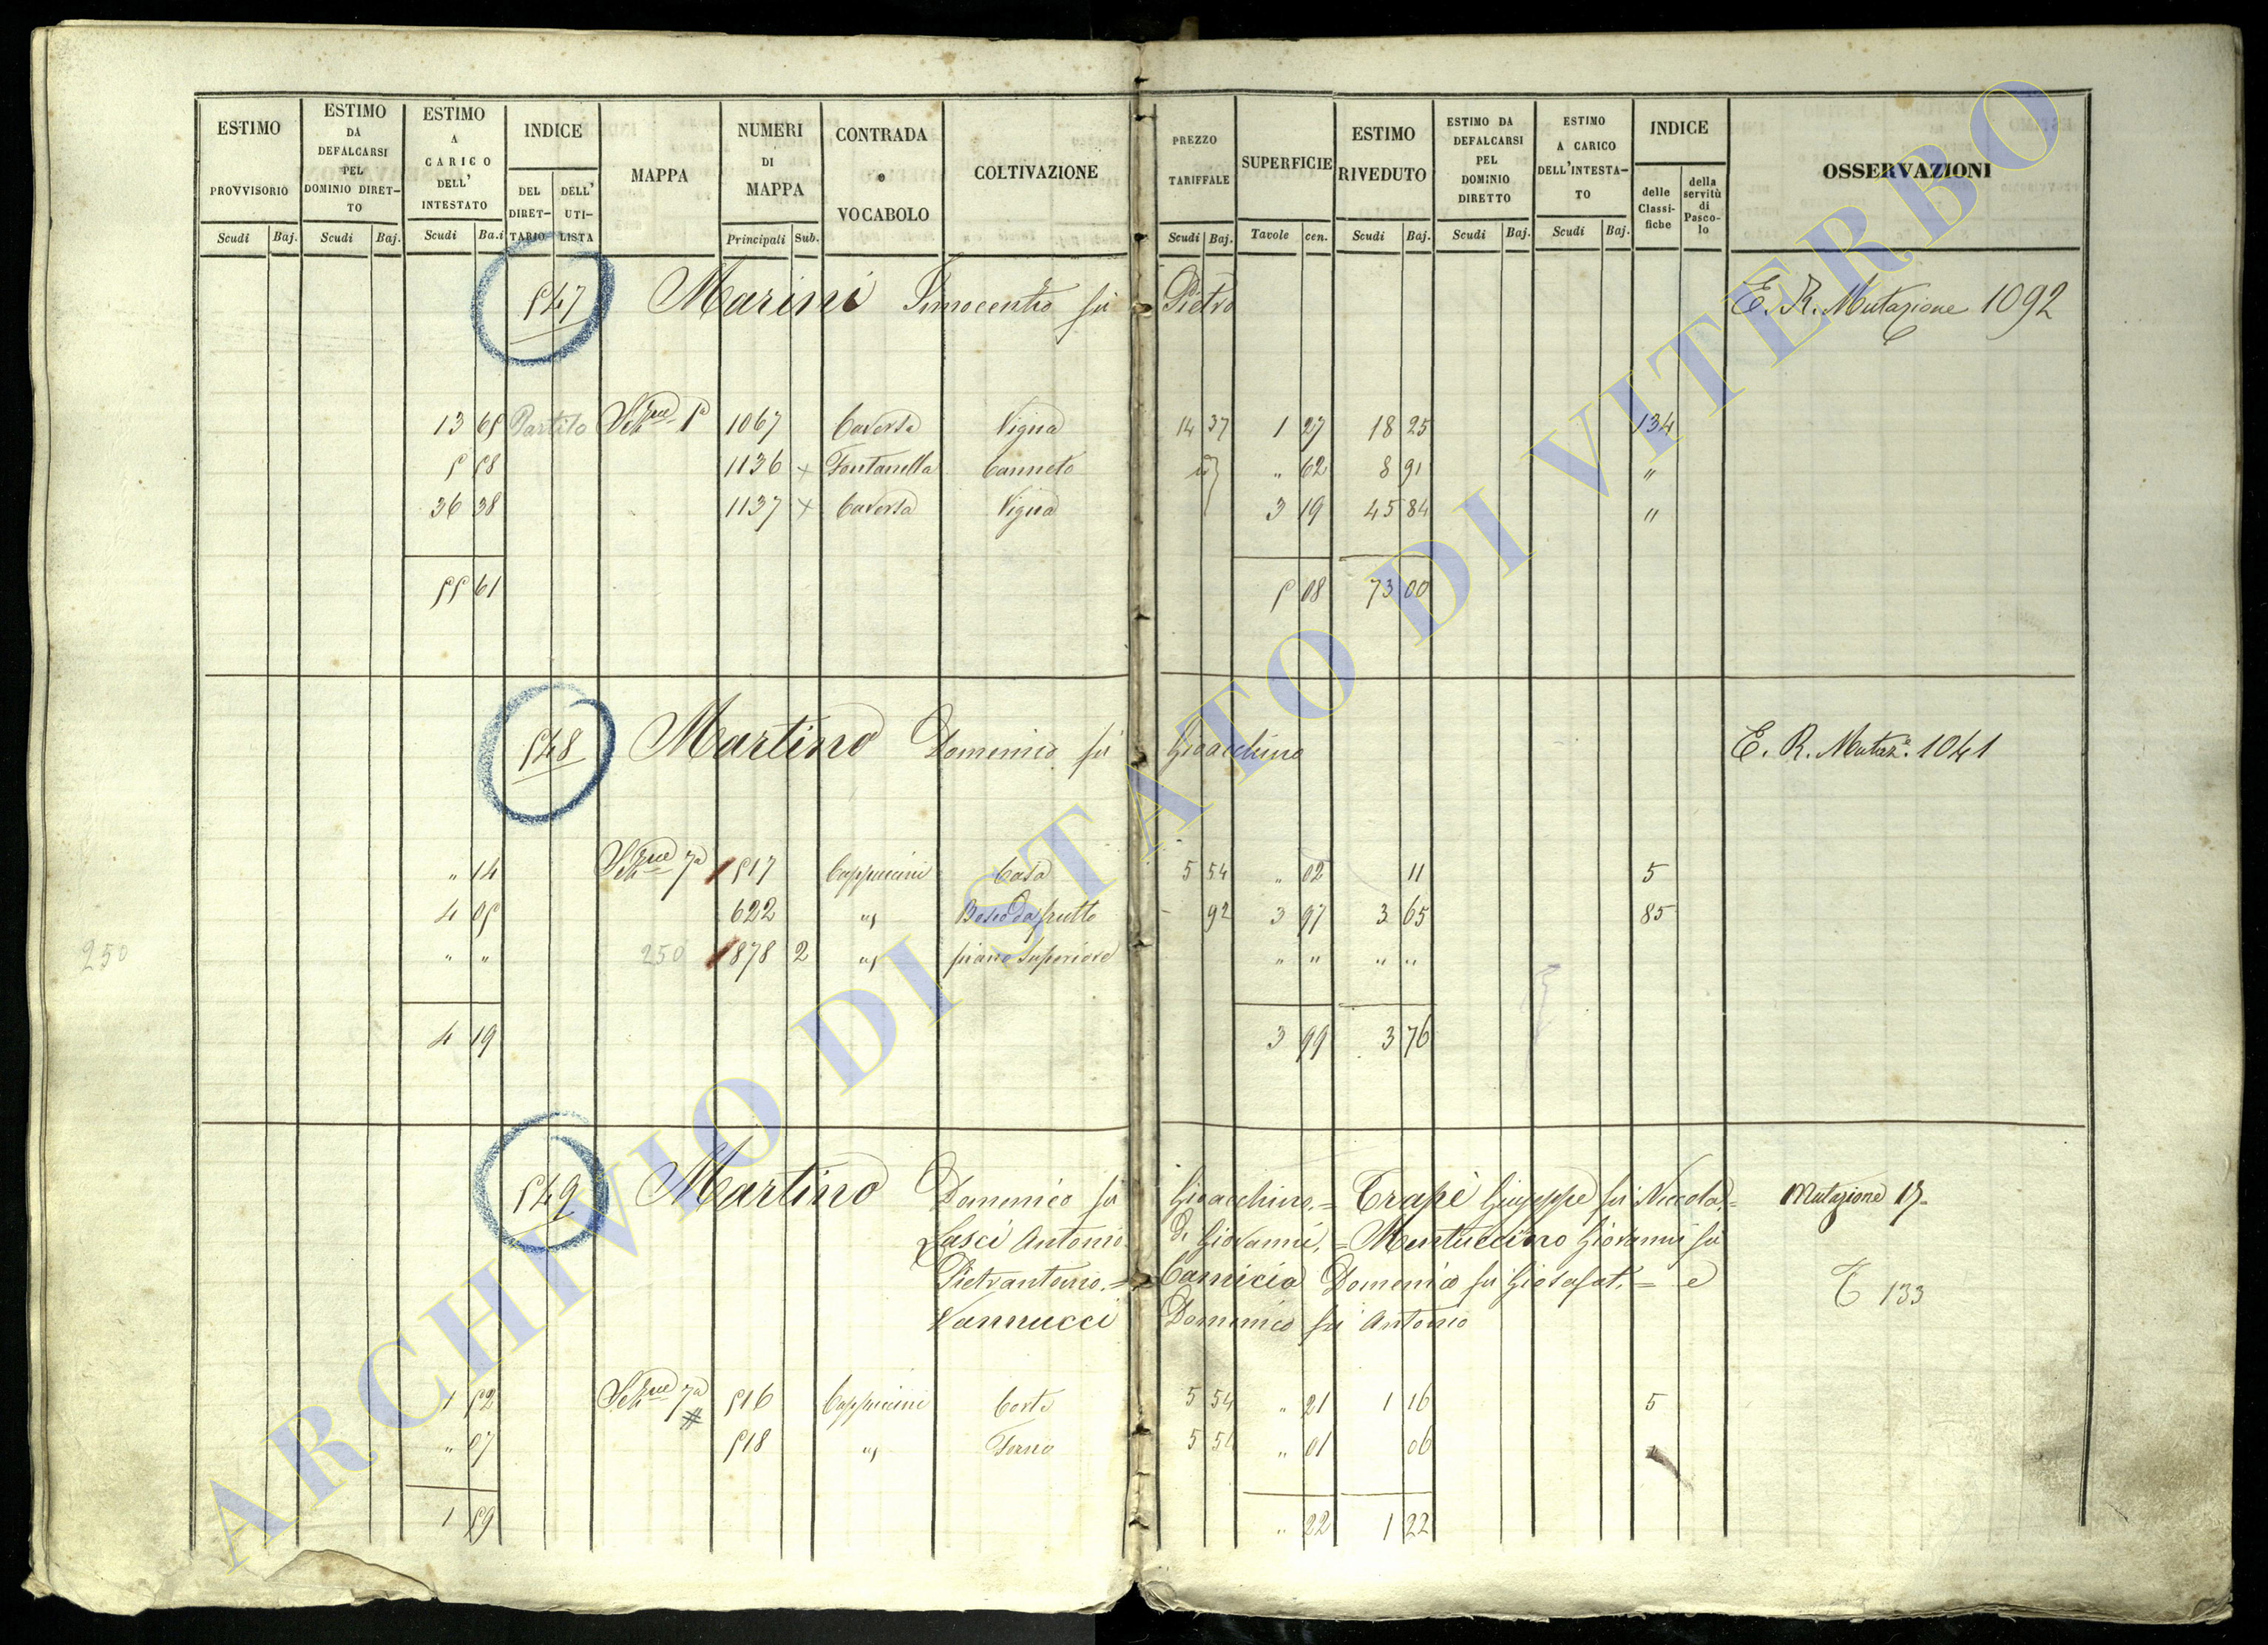 ESTIMO PROVVISORIO | ESTIMO DA DEFALCARSI PEL DOMINIO DIRETTO | ESTIMO A CARICO DELL' INTESTATO | INDICE DEL DIRETTARIO | DELL' UTILISTA | MAPPA | NUMERI DI MAPPA | CONTRADA e VOCABOLO | COLTIVAZIONE | PREZZO TARIFFALE | SUPERFICIE | ESTIMO RIVEDUTO | ESTIMO DA DEFALCARSI PEL DOMINIO DIRETTO | ESTIMO A CARICO DELL'INTESTATO | INDICE delle Classifiche | della servitù di Pascolo | OSSERVAZIONI
Scudi Baj. Scudi Baj. Scudi Ba.i Principali Sub. Scudi Baj. Tavole cen. Scudi Baj. Scudi Baj. Scudi Baj.
547 Marini Innocentio fu Pietro E. R. Mutazione 1092
13 65 Partito 5a 1067 Caversa Vigna 14 37 1 27 18 25 134
5 58 1136 + Fontanella Canneto id " 62 8 91 "
36 38 1137 + Caversa Vigna 3 19 45 84 "
55 61 5 08 73 00
548 Martino Domenico fu Gioacchino E. R. Mutaz.e 1041
" 14 7a 1517 Cappuccini Casa 5 54 " 02 11 5
4 05 622 " Bosco da frutto - 92 3 97 3 65 85
250 " " 250 1878 2 " piano Superiore " " " "
4 19 3 99 3 76
549 Martino Domenico fu Gioacchino. = Trapè Giuseppe fu Niccola. = Mutazione 15
Lasci Antonio di Giovanni, = Mentuccino Giovanni fu
Pietrantonio. = Camicia Domenico fu Giosafat. = e 133
Vannucci Domenico fu Antonio
1 52 7a # 516 Cappuccini Corte 5 54 " 21 1 16 5
" 07 518 " Forno 5 54 " 01 06
1 59 " 22 1 22
ARCHIVIO DI STATO DI VITERBO